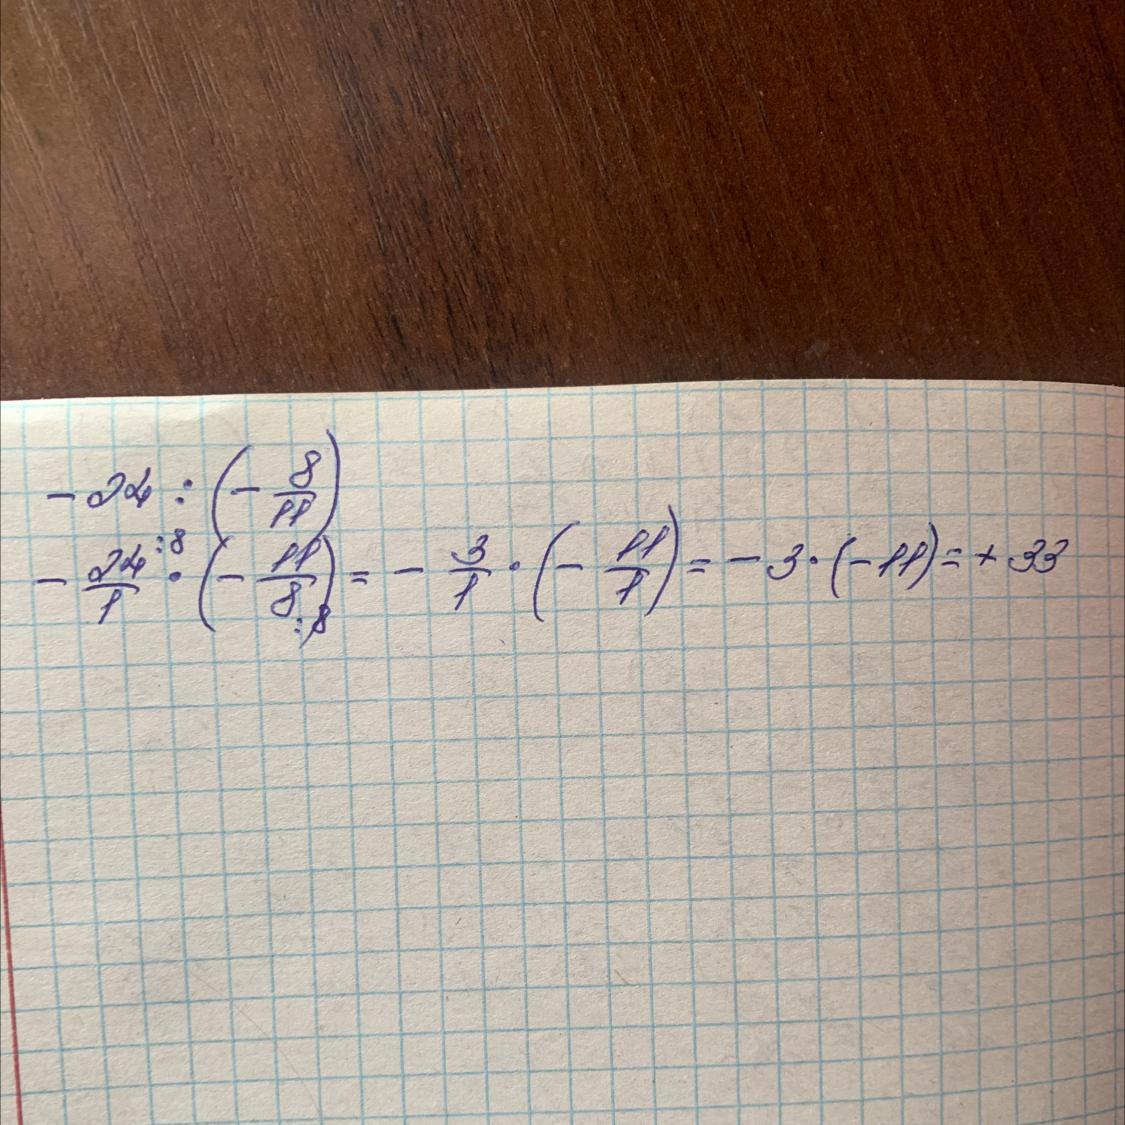 - 24 : (- 8/11)
- 24:8/1 · (- 11/8:8) = - 3/1 · (- 11/1) = - 3 · (-11) = + 33